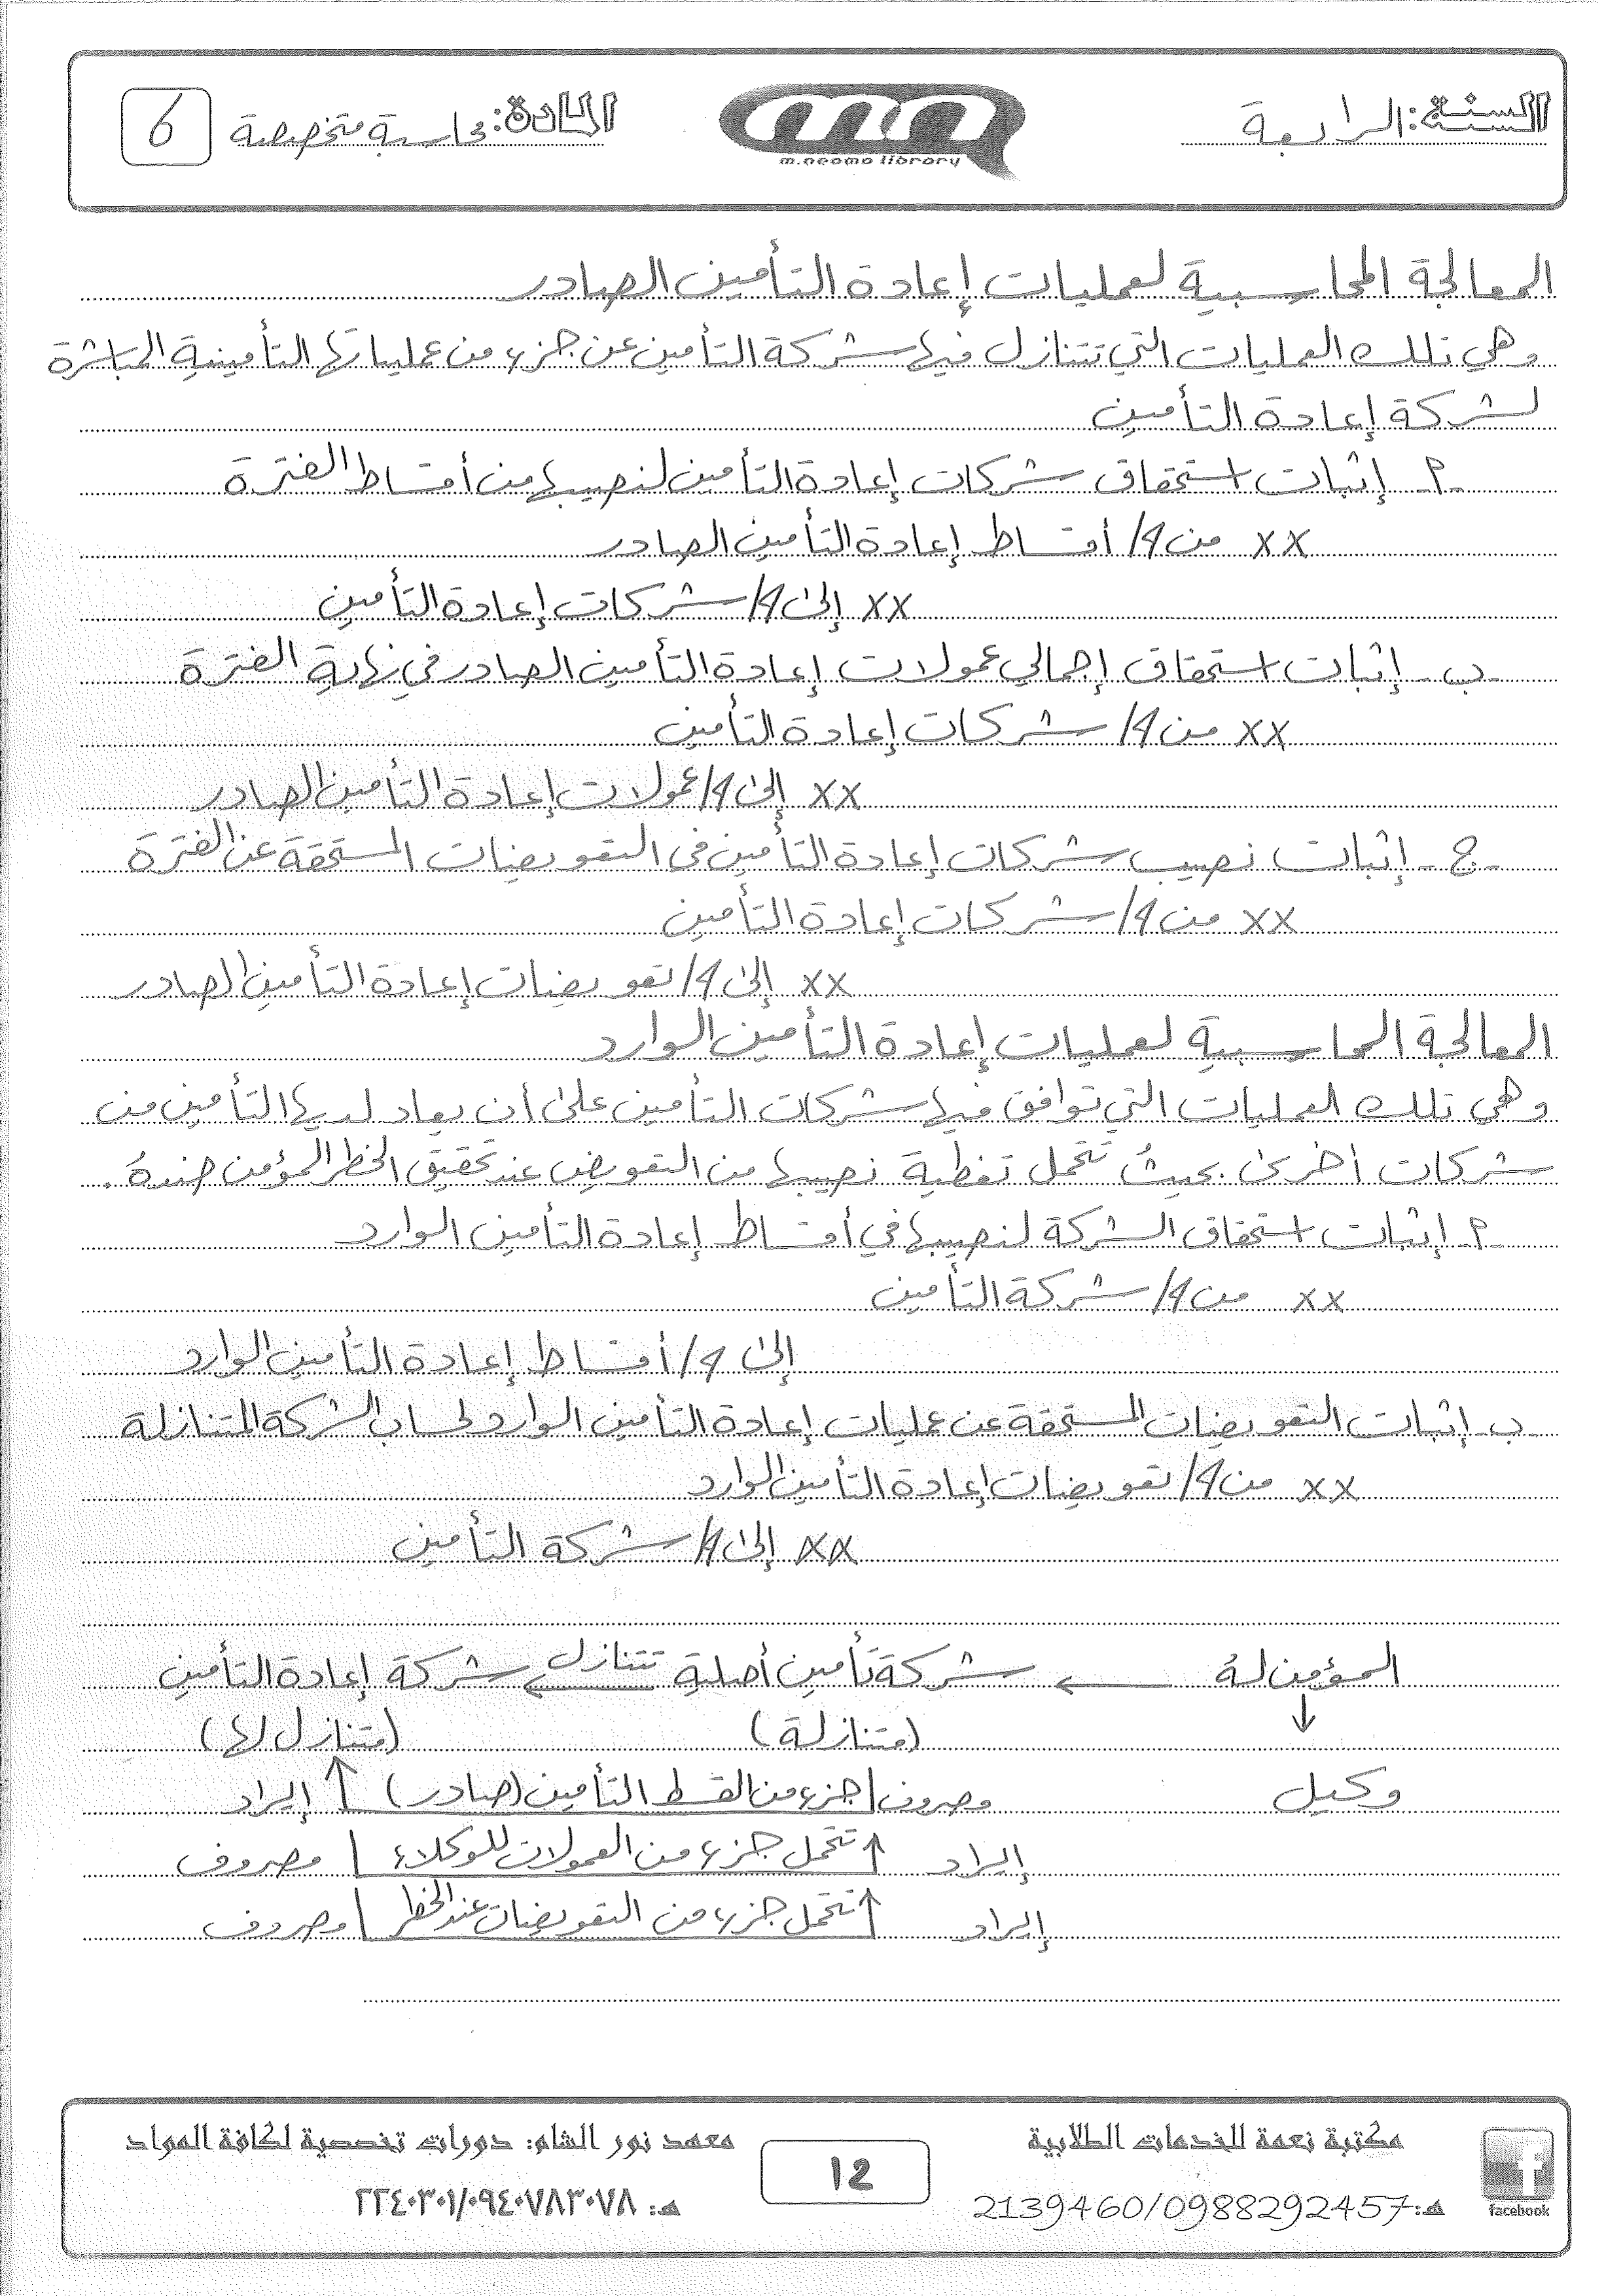 السنة: الرابعة
m.neama library
المادة: محاسبة متخصصة
6
المعالجة المحاسبية لعمليات إعادة التأمين الصادر
وهي تلك العمليات التي تتنازل فيها شركة التأمين عن جزء من عملياتها التأمينية المباشرة
لشركة إعادة التأمين
-أ- إثبات استحقاق شركات إعادة التأمين لنصيبها من أقساط الفترة
xx من ح/ أقساط إعادة التأمين الصادر
xx إلى ح/ شركات إعادة التأمين
-ب- إثبات استحقاق إجمالي عمولات إعادة التأمين الصادر في نهاية الفترة
xx من ح/ شركات إعادة التأمين
xx إلى ح/ عمولات إعادة التأمين الصادر
-ج- إثبات نصيب شركات إعادة التأمين في التعويضات المستحقة عن الفترة
xx من ح/ شركات إعادة التأمين
xx إلى ح/ تعويضات إعادة التأمين الصادر
المعالجة المحاسبية لعمليات إعادة التأمين الوارد
وهي تلك العمليات التي توافق فيها شركات التأمين على أن يعاد لديها التأمين من
شركات أخرى بحيث تتحمل تغطية نصيبها من التعويض عند تحقيق الخطر المؤمن ضنده.
-أ- إثبات استحقاق الشركة لنصيبها في أقساط إعادة التأمين الوارد
xx من ح/ شركة التأمين
إلى ح/ أقساط إعادة التأمين الوارد
-ب- إثبات التعويضات المستحقة عن عمليات إعادة التأمين الوارد لحساب الشركة المتنازلة
xx من ح/ تعويضات إعادة التأمين الوارد
xx إلى ح/ شركة التأمين
المؤمن له ← شركة تأمين أصلية تتنازل ← شركة إعادة التأمين
↓ (متنازلة) (متنازل لها)
وكيل مصروف | جزء من القسط التأمين (صادر) ↑ إيراد
إيراد ↑ تتحمل جزء من العمولات للوكلاء | مصروف
إيراد ↑ تتحمل جزء من التعويضات عند الخطر | مصروف
facebook
مكتبة نعمة للخدمات الطلابية
هـ: 2139460/0988292457
12
معهد نور الشام: دورات تخصصية لكافة المواد
هـ: ٢٢٤٠٣٠١/٠٩٤٠٧٨٣٠٧٨